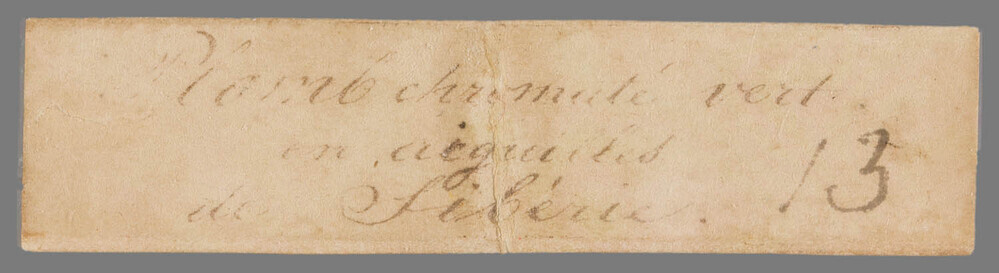 Plomb chromaté vert
en aiguilles
de Sibérie. 13